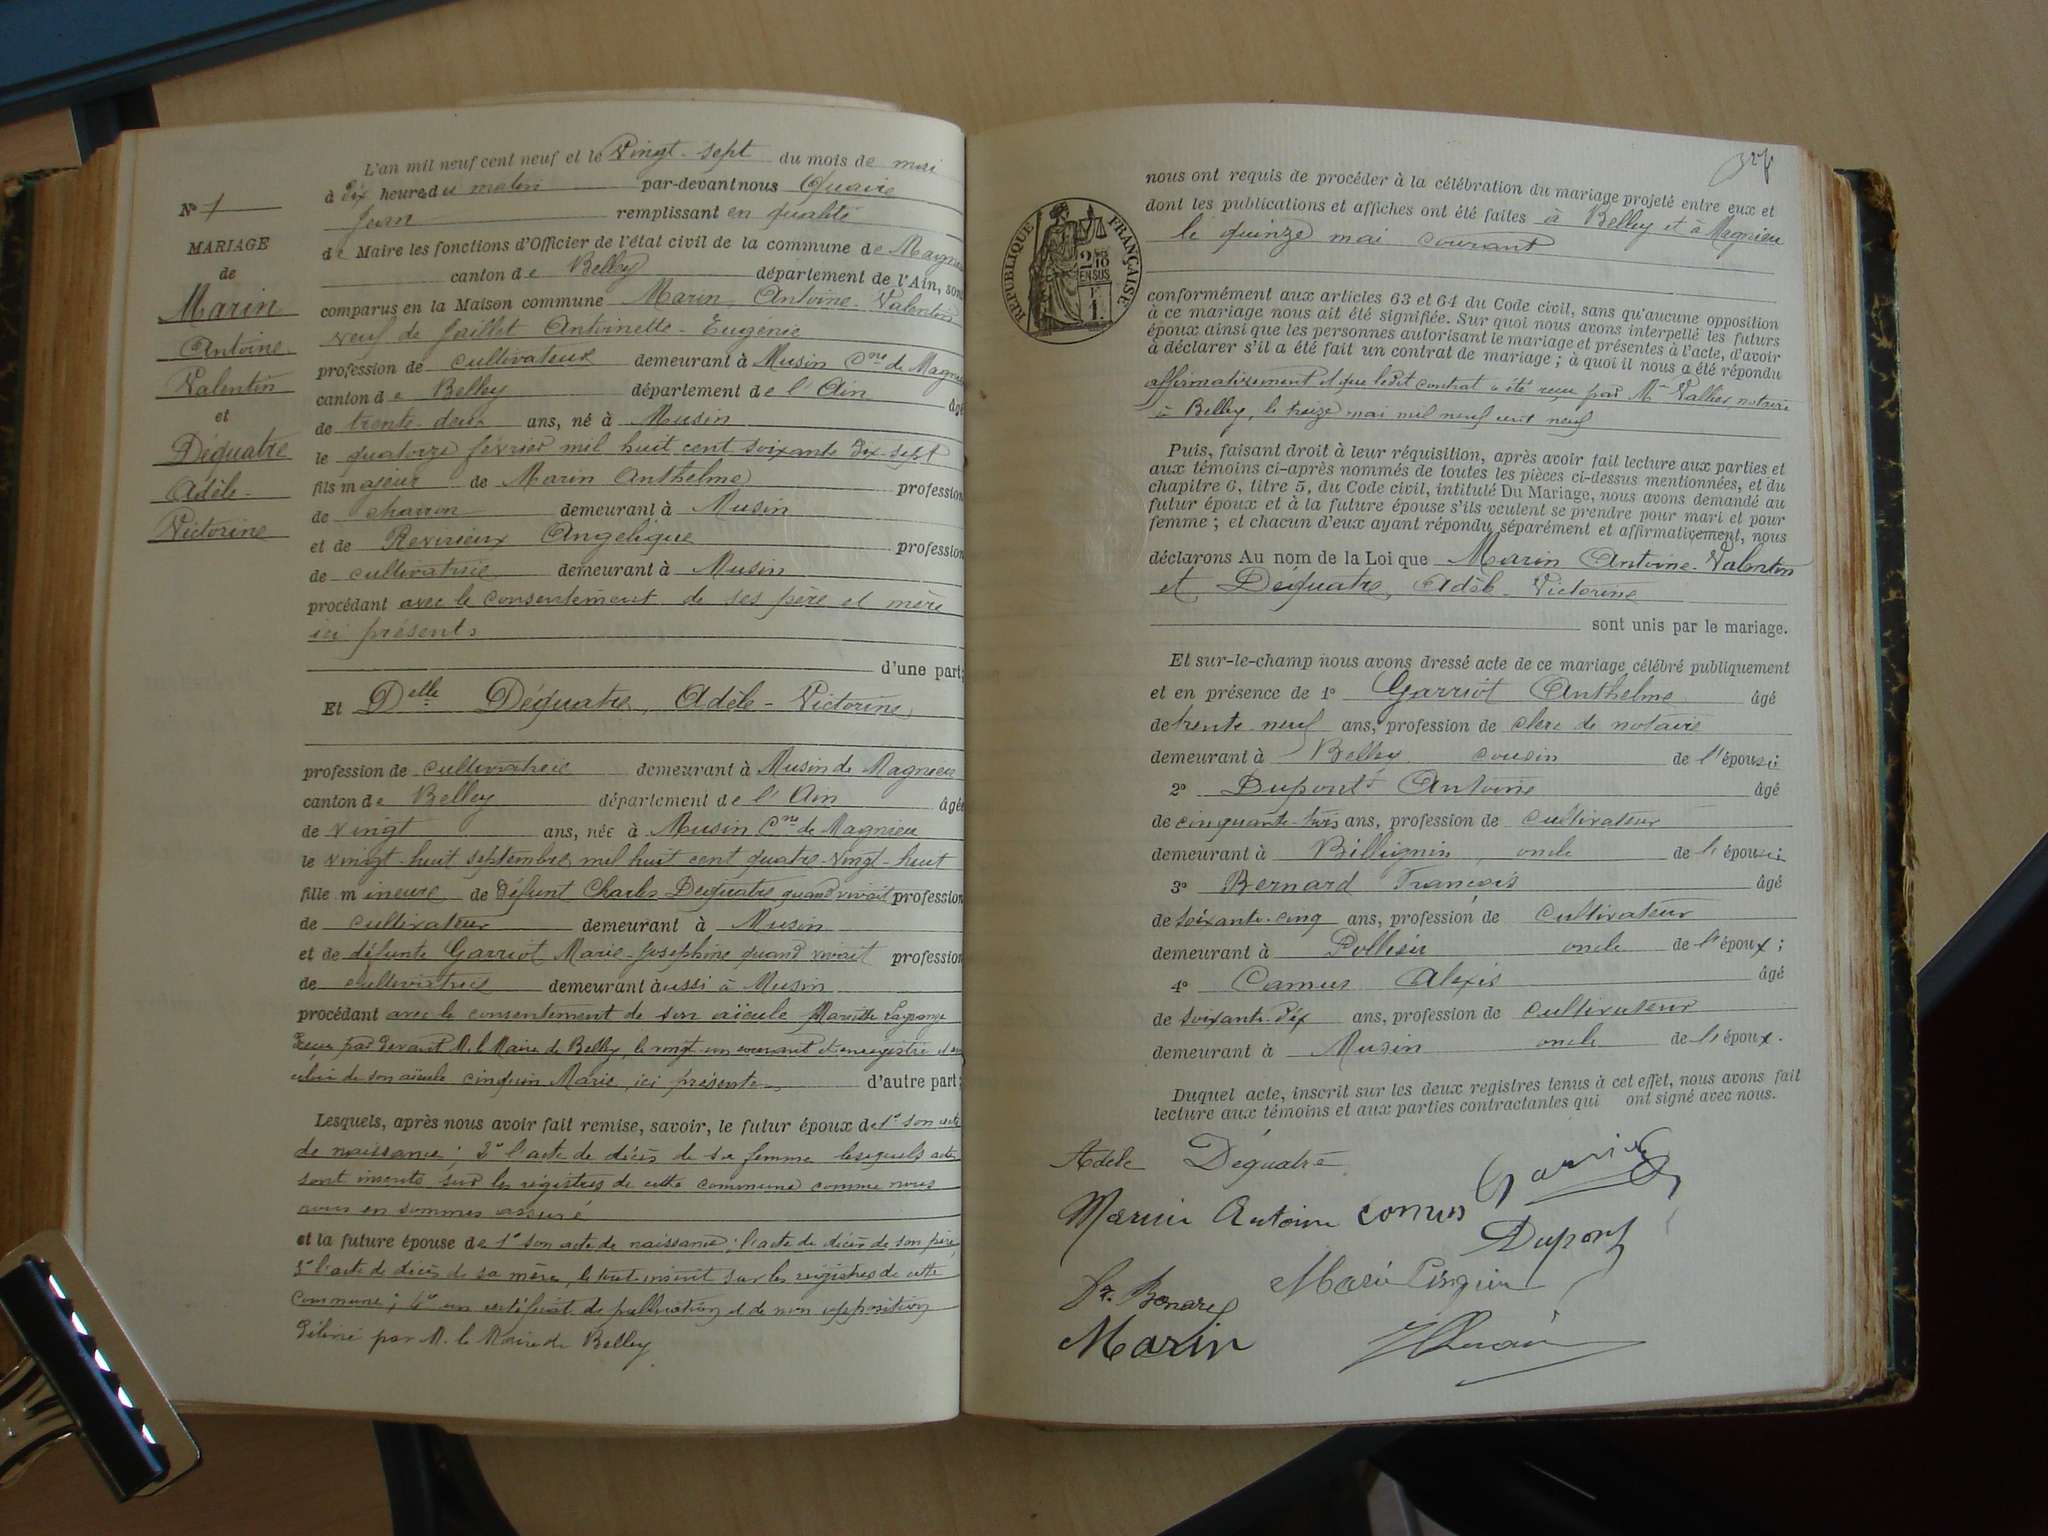 L'an mil neuf cent neuf et le Vingt-sept du mois de mai
à dix heures du matin par-devant nous Quaire
Jean remplissant en qualité
de Maire les fonctions d'Officier de l'état civil de la commune de Magnieu
canton de Belley département de l'Ain, sont
comparus en la Maison commune Marin, Antoine-Valentin
veuf de Jaillet Antoinette-Eugénie
profession de cultivateur demeurant à Musin Cne de Magnieu
canton de Belley département de l'Ain âgé
de trente deux ans, né à Musin
le quatorze février mil huit cent soixante dix-sept
fils majeur de Marin Anthelme profession
de charron demeurant à Musin
et de Revirieux Angélique profession
de cultivatrice demeurant à Musin
procédant avec le consentement de ses père et mère
ici présents
d'une part;
Et Delle Déquatre, Adèle-Victorine
profession de cultivatrice demeurant à Musin de Magnieu
canton de Belley département de l'Ain âgée
de vingt ans, née à Musin Cne de Magnieu
le vingt-huit septembre mil huit cent quatre-vingt-huit
fille mineure de défunt Charles Dequatre quand vivait profession
de cultivateur demeurant à Musin
et de défunte Garriot Marie-Josephine quand vivait profession
de cultivatrice demeurant aussi à Musin
procédant avec le consentement de son aïeule Mariette Lagrange
reçu par devant M. le Maire de Belley, le vingt-un courant et enregistré et de
celui de son aïeule Cinquin Marie, ici présente d'autre part;
Lesquels, après nous avoir fait remise, savoir, le futur époux de 1° son acte
de naissance; 2° l'acte de décès de sa femme lesquels actes
sont inscrits sur les registres de cette commune comme nous
nous en sommes assuré
et la future épouse de 1° son acte de naissance; l'acte de décès de son père,
3° l'acte de décès de sa mère, le tout inscrit sur les registres de cette
commune; 4° un certificat de publication et de non opposition
délivré par M. le Maire de Belley
N° 7
MARIAGE
de
Marin
Antoine
Valentin
et
Déquatre
Adèle-
Victorine
327
nous ont requis de procéder à la célébration du mariage projeté entre eux et
dont les publications et affiches ont été faites à Belley et à Magnieu
le quinze mai courant
RÉPUBLIQUE FRANÇAISE
2/10 EN SUS
1F
conformément aux articles 63 et 64 du Code civil, sans qu'aucune opposition
à ce mariage nous ait été signifiée. Sur quoi nous avons interpellé les futurs
époux ainsi que les personnes autorisant le mariage et présentes à l'acte, d'avoir
à déclarer s'il a été fait un contrat de mariage; à quoi il nous a été répondu
affirmativement et que ledit contrat a été reçu par Me Vallier, notaire
à Belley, le treize mai mil neuf cent neuf
Puis, faisant droit à leur réquisition, après avoir fait lecture aux parties et
aux témoins ci-après nommés de toutes les pièces ci-dessus mentionnées, et du
chapitre 6, titre 5, du Code civil, intitulé Du Mariage, nous avons demandé au
futur époux et à la future épouse s'ils veulent se prendre pour mari et pour
femme; et chacun d'eux ayant répondu séparément et affirmativement, nous
déclarons Au nom de la Loi que Marin Antoine-Valentin
et Déquatre, Adèle-Victorine
sont unis par le mariage.
Et sur-le-champ nous avons dressé acte de ce mariage célébré publiquement
et en présence de 1° Garriot Anthelme âgé
de trente neuf ans, profession de clerc de notaire
demeurant à Belley cousin de l'épouse
2° Dupont Antoine âgé
de cinquante-trois ans, profession de cultivateur
demeurant à Billignin, oncle de l'épouse;
3° Bernard François âgé
de soixante-cinq ans, profession de cultivateur
demeurant à Pollieu oncle de l'époux;
4° Camus Alexis âgé
de soixante-dix ans, profession de cultivateur
demeurant à Musin oncle de l'époux.
Duquel acte, inscrit sur les deux registres tenus à cet effet, nous avons fait
lecture aux témoins et aux parties contractantes qui ont signé avec nous.
Adèle Déquatre Garriot
Marin Antoine camus
Dupont
Fr. Bernard Marie Cinquin
Marin